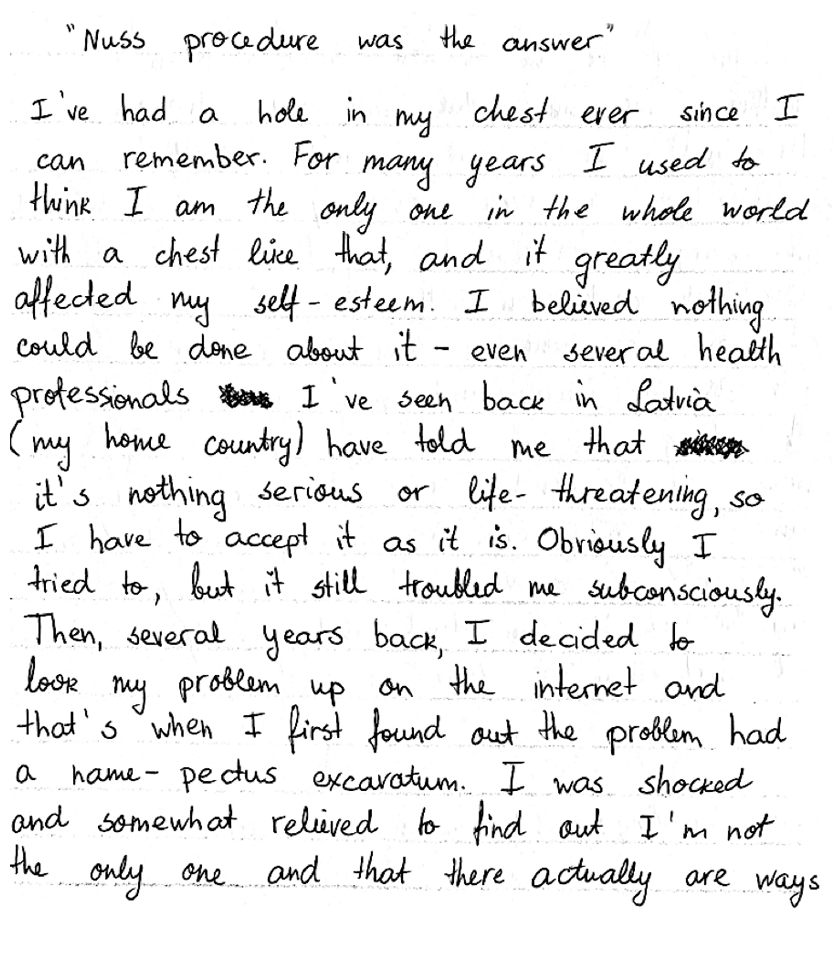 "Nuss procedure was the answer"
I've had a hole in my chest ever since I
can remember. For many years I used to
think I am the only one in the whole world
with a chest like that, and it greatly
affected my self-esteem. I believed nothing
could be done about it - even several health
professionals I've seen back in Latvia
(my home country) have told me that
it's nothing serious or life-threatening, so
I have to accept it as it is. Obviously I
tried to, but it still troubled me subconsciously.
Then, several years back, I decided to
look my problem up on the internet and
that's when I first found out the problem had
a name- pectus excavatum. I was shocked
and somewhat relieved to find out I'm not
the only one and that there actually are ways